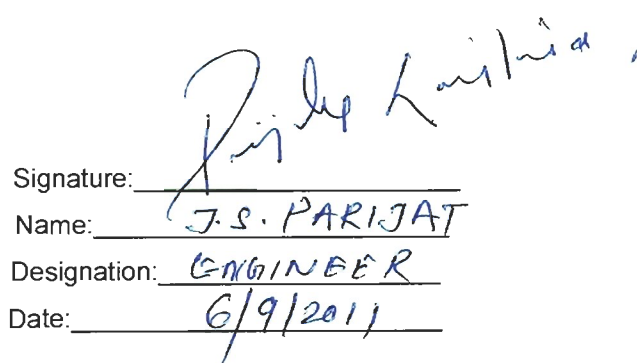 Signature:
Name: J.S. PARIJAT
Designation: ENGINEER
Date: 6/9/2011